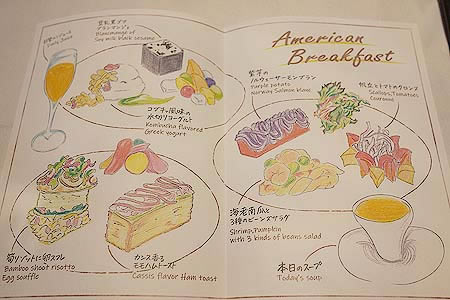 豆乳黒ゴマ
ブランマンジェ
Blancmange of
Soy milk black sesame
コブチャ風味の
水切りヨーグルト
Kombucha flavored
Greek yogurt
筍リゾットに卵スフレ
Bamboo shoot risotto
Egg souffle
カシス香る
モモハムトースト
Cassis flavor Ham toast
American
Breakfast
紫芋の
ノルウェーサーモンブラン
Purple potato
Norway Salmon blanc
帆立とトマトのクロンヌ
Scallops, Tomatoes
Couronne
海老南瓜と
3種のビーンズサラダ
Shrimp, Pumpkin
with 3 kinds of beans salad
本日のスープ
Today's soup